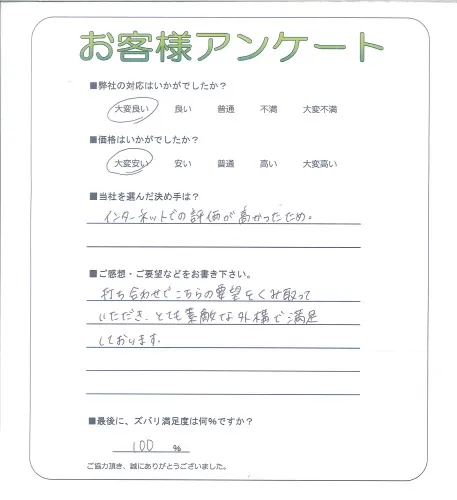 お客様アンケート
■弊社の対応はいかがでしたか？
大変良い 良い 普通 不満 大変不満
■価格はいかがでしたか？
大変安い 安い 普通 高い 大変高い
■当社を選んだ決め手は？
インターネットでの評価が高かったため。
■ご感想・ご要望などをお書き下さい。
打ち合わせでこちらの要望をくみ取って
いただき、とても素敵な外構で満足
しております。
■最後に、ズバリ満足度は何％ですか？
100 ％
ご協力頂き、誠にありがとうございました。